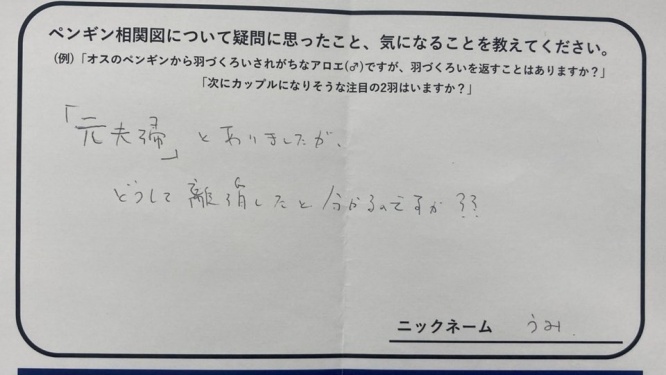 ペンギン相関図について疑問に思ったこと、気になることを教えてください。
(例)「オスのペンギンから羽づくろいされがちなアロエ(♂)ですが、羽づくろいを返すことはありますか?」
「次にカップルになりそうな注目の2羽はいますか?」
「元夫婦」とありましたが、
どうして離婚したと分かるのですか??
ニックネーム うみ